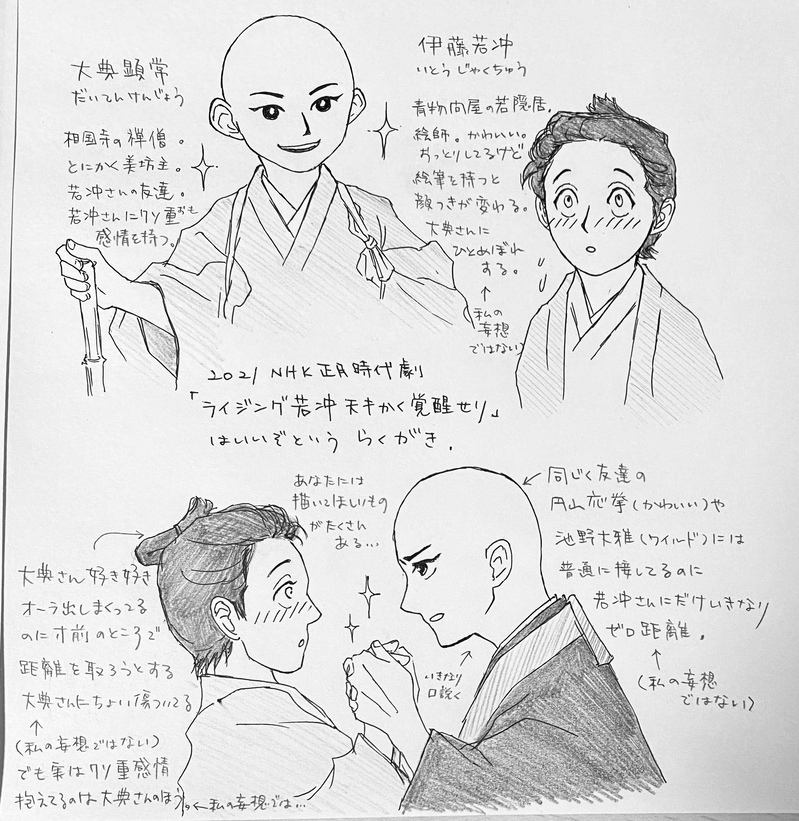 大典顕常
だいてんけんじょう
相国寺の禅僧。
とにかく美坊主。
若冲さんの友達。
若冲さんにクソ重おも
感情を持つ。
伊藤若冲
いとうじゃくちゅう
青物問屋の若隠居。
絵師。かわいい。
おっとりしてるけど
絵筆を持つと
顔つきが変わる。
大典さんに
ひとめぼれ
する。
↑
(私の
妄想
ではない)
2021 NHK正月時代劇
「ライジング若冲 天才かく覚醒せり」
はいいぞという らくがき.
あなたには
描いてほしいもの
がたくさん
ある…
同じく友達の
円山応挙(かわいい)や
池野大雅(ワイルド)には
普通に接してるのに
若冲さんにだけいきなり
ゼロ距離。
↑
(私の妄想
ではない)
いきなり
口説く
大典さん好き好き
オーラ出しまくってる
のに寸前のところで
距離を取ろうとする
大典さんにちょい傷ついてる
↑
(私の妄想ではない)
でも実はクソ重感情
抱えてるのは大典さんのほう。←私の妄想では…